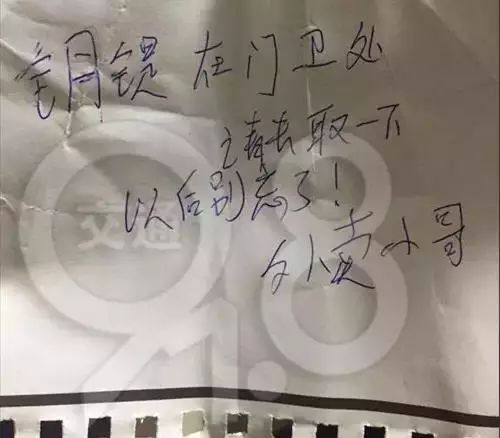 钥匙 在门卫处
请去取一下
以后别忘了!
外卖小哥
交通
91.8